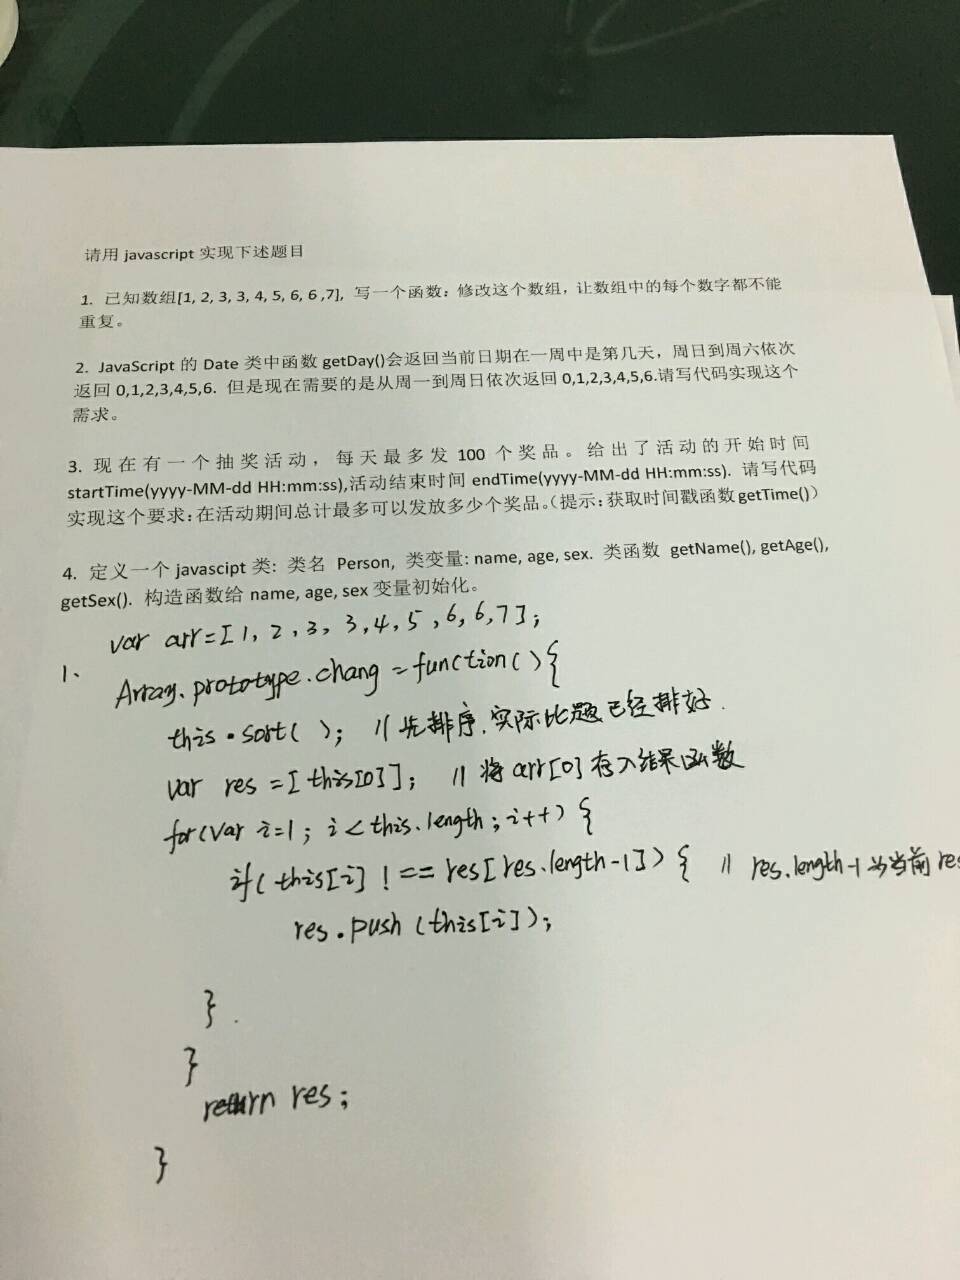 请用 javascript 实现下述题目
1. 已知数组[1, 2, 3, 3, 4, 5, 6, 6 ,7], 写一个函数：修改这个数组，让数组中的每个数字都不能
重复。
2. JavaScript 的 Date 类中函数 getDay()会返回当前日期在一周中是第几天，周日到周六依次
返回 0,1,2,3,4,5,6. 但是现在需要的是从周一到周日依次返回 0,1,2,3,4,5,6.请写代码实现这个
需求。
3. 现在有一个抽奖活动，每天最多发 100 个奖品。给出了活动的开始时间
startTime(yyyy-MM-dd HH:mm:ss),活动结束时间 endTime(yyyy-MM-dd HH:mm:ss). 请写代码
实现这个要求：在活动期间总计最多可以发放多少个奖品。（提示：获取时间戳函数 getTime()）
4. 定义一个 javascipt 类: 类名 Person, 类变量: name, age, sex. 类函数 getName(), getAge(),
getSex(). 构造函数给 name, age, sex 变量初始化。
var arr=[1, 2, 3, 3, 4, 5, 6, 6, 7];
1. Array.prototype.chang = function(){
this.sort( ); // 先排序,实际此题已经排好.
var res = [this[0]]; // 将 arr[0] 存入结果函数
for(var i=1; i<this.length; i++){
if( this[i] !== res[res.length-1]){ // res.length-1 为当前 res
res.push (this[i]);
}
}
return res;
}